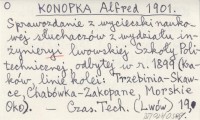 O
KONOPKA Alfred 1901.
Sprawozdanie z wycieczki nauko-
wej słuchaczów z wydziału in-
żynieryi lwowskiej Szkoły Poli-
technicznej, odbytej w r. 1899 (Kra-
ków, linie kolei: Trzebinia-Skaw-
ce, Chabówka-Zakopane, Morskie
Oko). — Czas. Tech. (Lwów) 19.